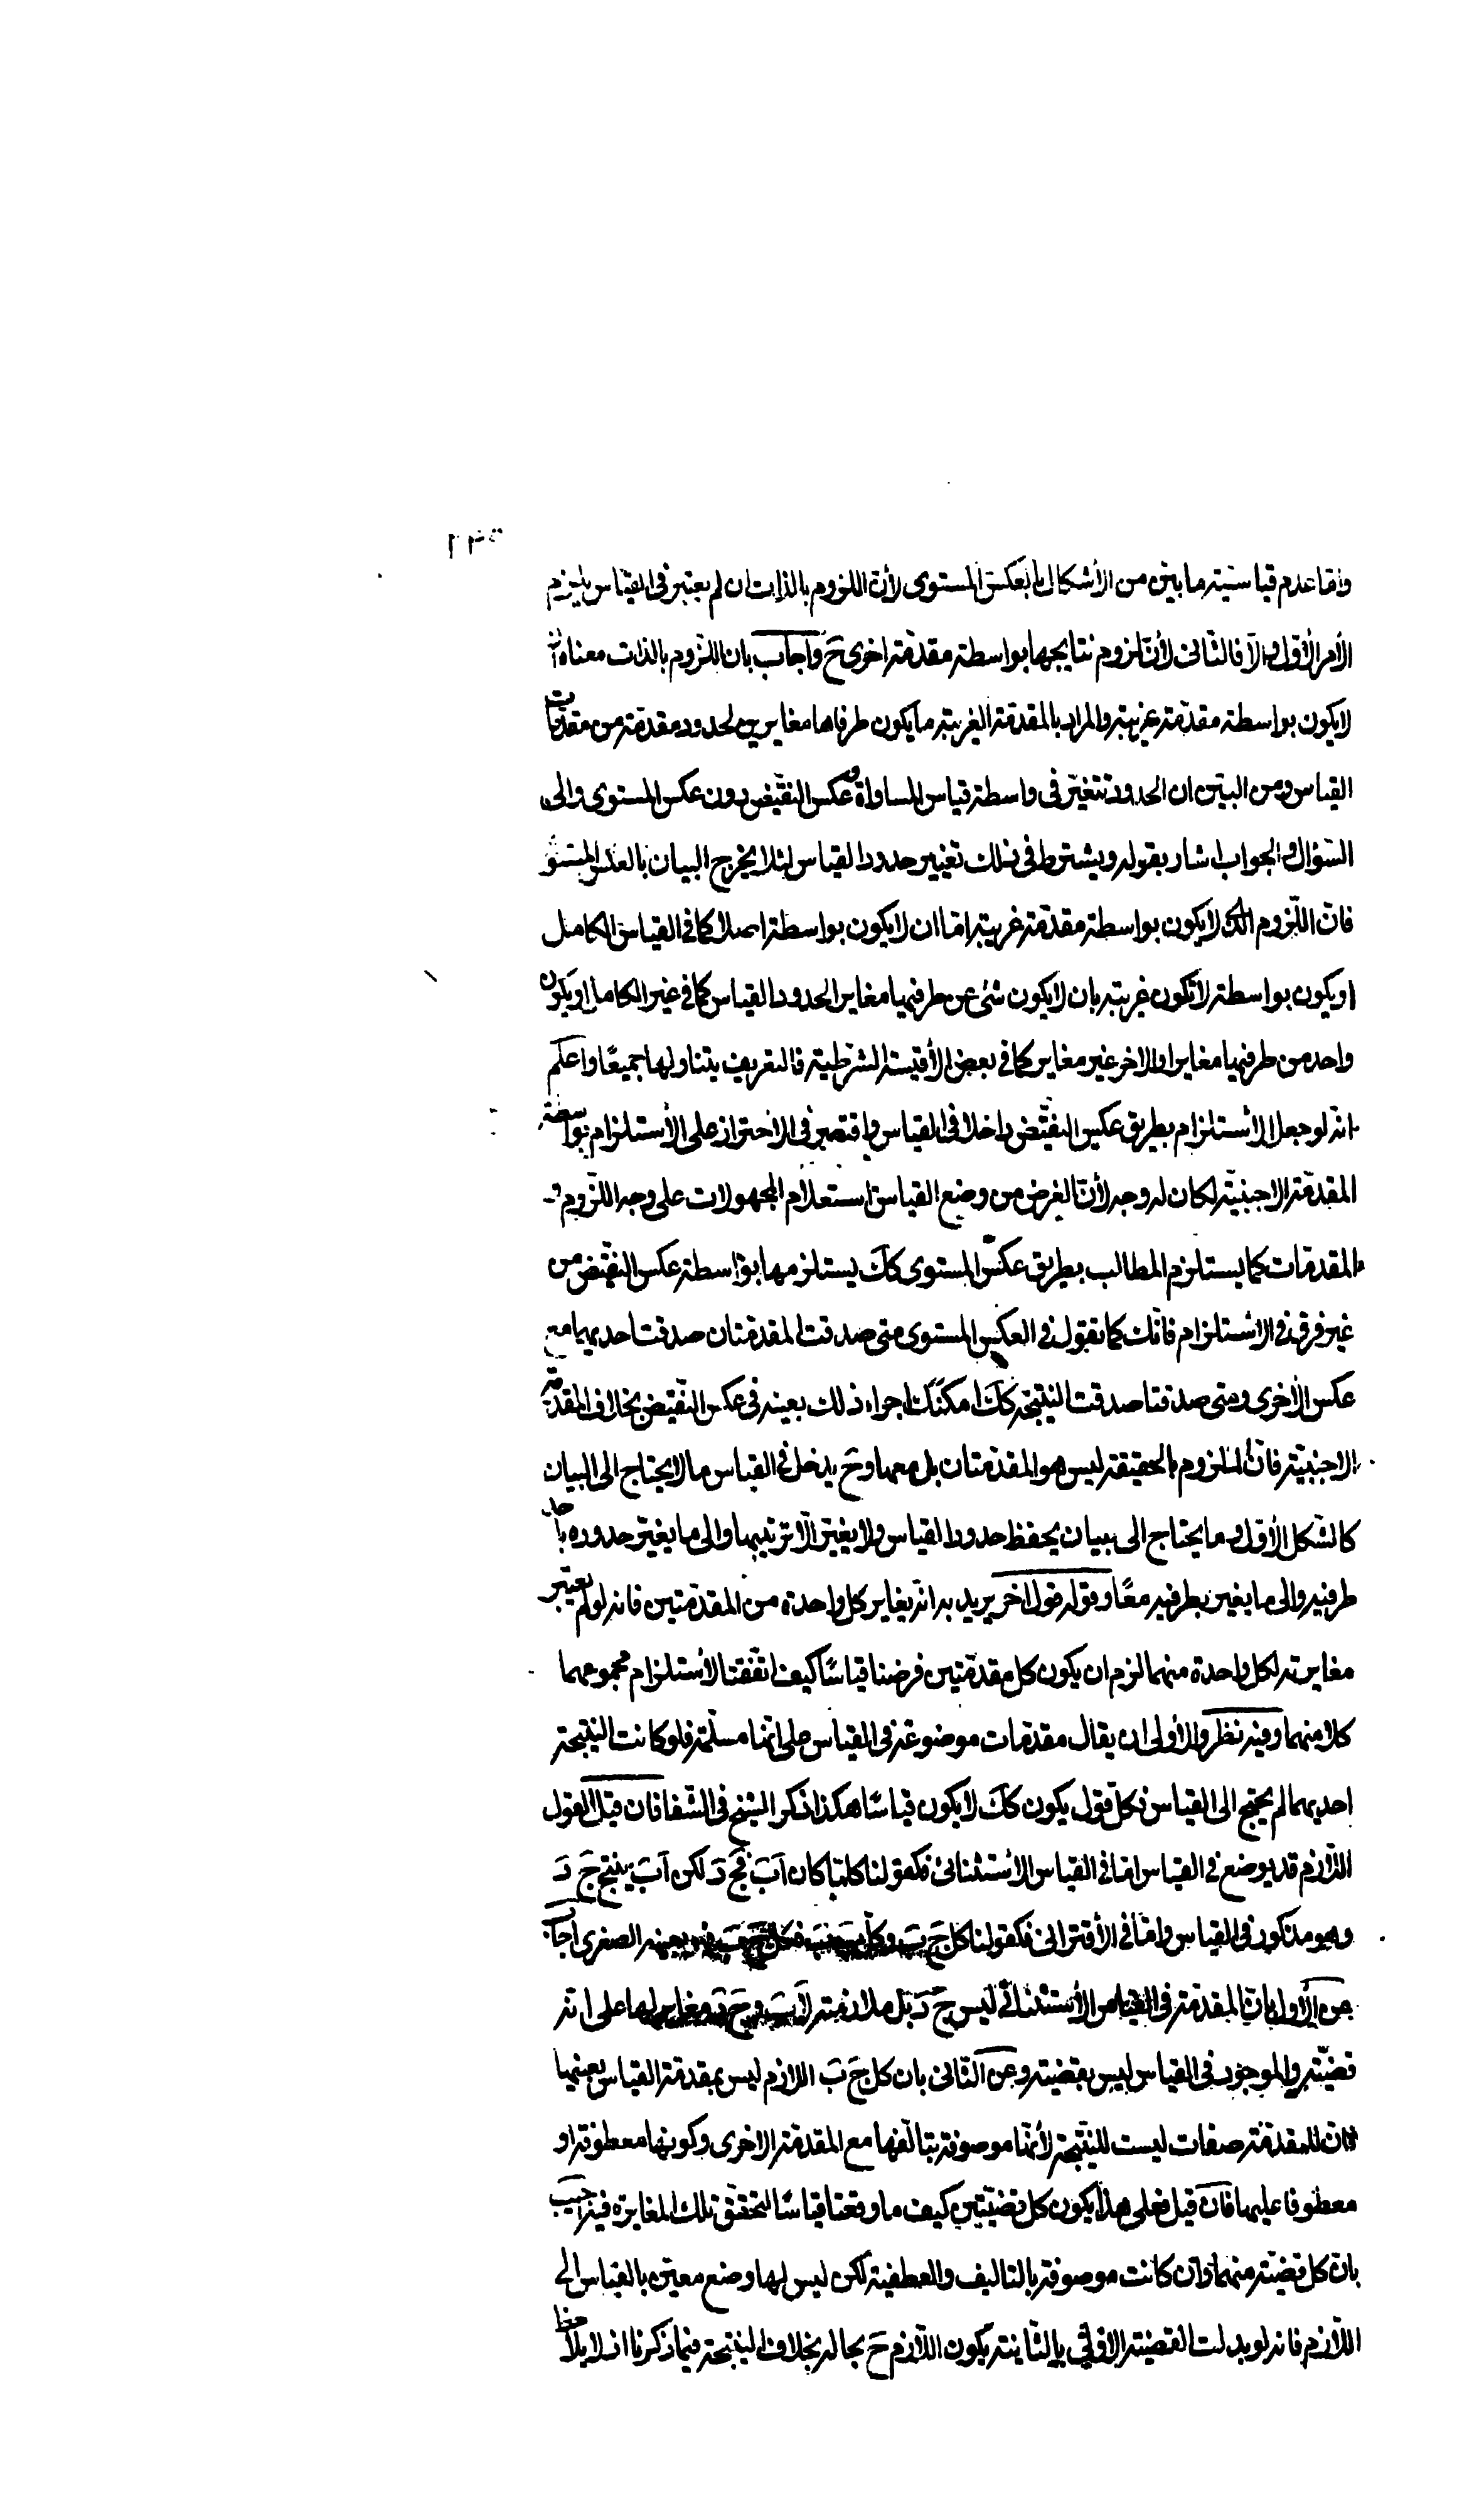 واما عدم قياسية ما بين من الأشكال بالعكس المستوى لأن اللزوم بالذات ان لم يعتبر فى القياس يلزم
الأمر الأول والا فالثانى لأن لزوم نتايجها بواسطة مقدمة اخرى ح واجاب بان اللزوم بالذات معناه أن
لا يكون بواسطة مقدمة غريبة والمراد بالمقدمة الغريبة ما يكون طرفاها مغايرين لحدود مقدمة من مقدمات
القياس ومن البين ان الحدود تتغير فى واسطة قياس المساواة وعكس النقيض دون عكس المستوى والى
السؤال والجواب اشار بقوله ويشترط فى ذلك تغيير حدود القياس لئلا يخرج البيان بالعكس المستوى
فان اللزوم الذى لا يكون بواسطة مقدمة غريبة اما ان لا يكون بواسطة اصلا كما فى القياس الكامل
او يكون بواسطة لا تكون غريبة بان لا يكون شئ من طرفيها مغاير الحدود القياس كما فى غير الكامل او يكون
واحد من طرفيها مغايرا والاخر غير مغاير كما فى بعض الأقيسة الشرطية فالتعريف يتناولها جميعًا واعلم
انه لو جعل الأستلزام بطريق عكس النقيض داخلا فى القياس واقتصر فى الاحتراز على الأستلزام بواسطة
المقدمة الاجنبية لكان له وجه لأن الغرض من وضع القياس استعلام المجهولات على وجه اللزوم
المقدمات كما يستلزم المطالب بطريق عكس المستوى كك يستلزمها بواسطة عكس النقيض من
غير فرق فى الأستلزام فانك كما تقول فى العكس المستوى متى صدقت المقدمتان صدقت احديهما مع
عكس الأخرى ومتى صدقتا صدقت النتيجة كك امكنك اجراء ذلك بعينه فى عكس النقيض بخلاف المقدمة
الاجنبية فان الملزوم بالحقيقة ليس هو المقدمتان بل معها وح يدخل فى القياس ما لا يحتاج الى البيان
كالشكل الأول وما يحتاج الى بيان يحفظ حدود القياس ولا يغير الا ترتيبها والى ما يغير حدوده باحد
طرفيه والى ما يغير بطرفيه معًا وقوله قول اخر يريد به انه يغاير كل واحدة من المقدمتين فانه لو لم يعتبر
مغايرته لكل واحدة منهما لزم ان يكون كل مقدمتين فرضنا قياسًا كيف اتفقتا لأستلزام مجموعهما
كلا منهما وفيه نظر والأولى ان يقال مقدمات موضوعة فى القياس على انها مسلمة فلو كانت النتيجة
احديهما لم يحتج الى القياس فكل قول يكون كك لا يكون قياسًا هكذا ذكر الشيخ فى الشفا فان قيل القول
اللازم قد يوضع فى القياس اما فى القياس الاستثنائى فكقولنا كلما كان اَبَ فجَ دَ لكن اَبَ ينتج جَ دَ
وهو مذكور فى القياس واما فى الأقترانى فكقولنا كل جَ بَ وكل بَ بَ فكل جَ بَ فهو بعينه الصغرى اجاب
عن الأول بان المقدمة فى القياس الأستثنائى ليس جَ دَ بل ملازمته لاَبَ وجَ دَ مغاير لها على انه
قضية والموجود فى القياس ليس بقضية وعن الثانى بان كل جَ بَ اللازم ليس بمقدمة القياس بعينها
فان للمقدمة صفات ليست للنتيجة لأنها موصوفة بتالفها مع المقدمة الاخرى وكونها معطوفة او
معطوفا عليها فان قيل فعلى هذا يكون كل قضيتين كيف ما وقعتا قياسًا لتحقق تلك المغايرة فيه اجيب
بان كل قضية منهما وان كانت موصوفة بالتاليف والعطفية لكن ليس لها وضع معين بالقياس الى
اللازم فانه لو بدلت القضية الاولى بالثانية يكون اللازم ح بحاله بخلاف النتيجة فيما ذكرنا